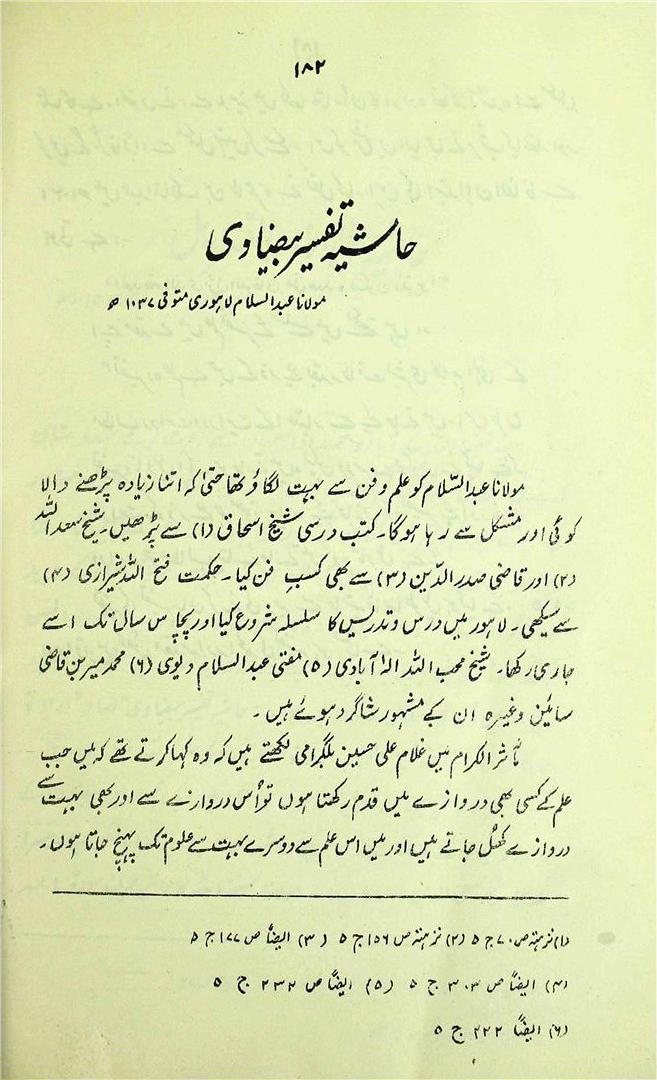 ۱۸۲
حاشیہ تفسیر بیضاوی
مولانا عبد السلام لاہوری متوفی ۱۰۳۷ ھ
مولانا عبد السّلام کو علم و فن سے بہت لگاؤ تھا حتیٰ کہ اتنا زیادہ پڑھنے والا
کوئی اور مشکل سے رہا ہوگا۔ کتب درسی شیخ اسحاق (۱) سے پڑھیں۔ شیخ سعد اللہ
(۲) اور قاضی صدر الدّین (۳) سے بھی کسبِ فن کیا۔ حکمت فتح اللہ شیرازی (۴)
سے سیکھی۔ لاہور میں درس و تدریس کا سلسلہ شروع کیا اور پچاس سال تک اسے
جاری رکھا۔ شیخ محب اللہ الہٰ آبادی (۵) مفتی عبد السلام دیوی (۶) محمد میر بن قاضی
سائین وغیرہ ان کے مشہور شاگرد ہوئے ہیں۔
مآثر الکرام میں غلام علی حسین بلگرامی لکھتے ہیں کہ وہ کہا کرتے تھے کہ میں جب
علم کے کسی بھی دروازے میں قدم رکھتا ہوں تو اُس دروازے سے اور بھی بہت سے
دروازے کھُل جاتے ہیں اور میں اس علم سے دوسرے بہت سے علوم تک پہنچ جاتا ہوں۔
(۱) نزہتہ ص ۷۰ ج ۵ (۲) نزہتہ ص ۱۵۶ ج ۵ (۳) ایضاً ص ۱۷۷ ج ۵
(۴) ایضاً ص ۳۰۳ ج ۵ (۵) ایضاً ص ۲۳۲ ج ۵
(۶) ایضاً ۲۲۲ ج ۵